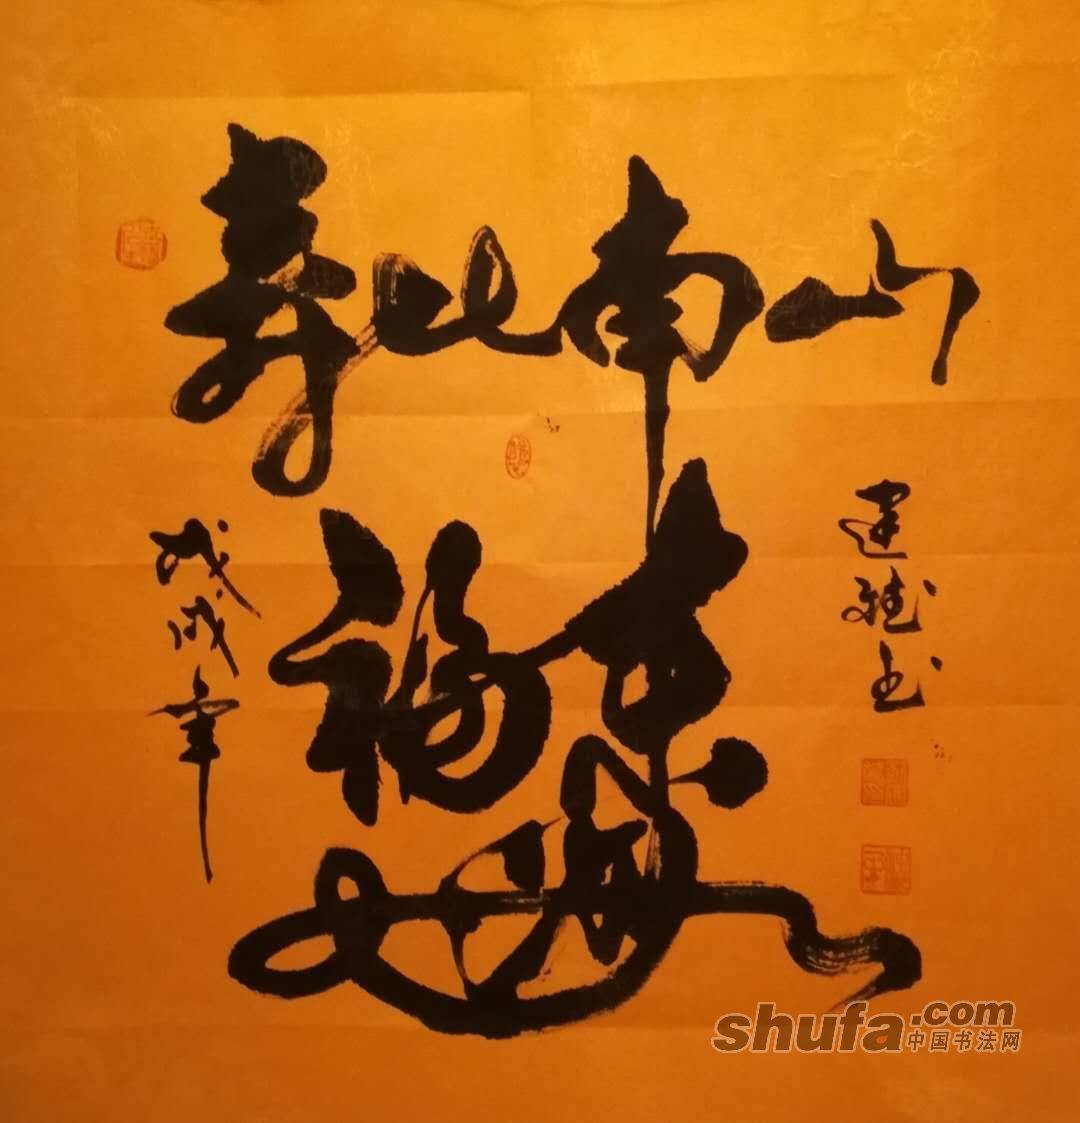 寿比南山
福如东海
戊戌年
建 书
shufa.com
中国书法网